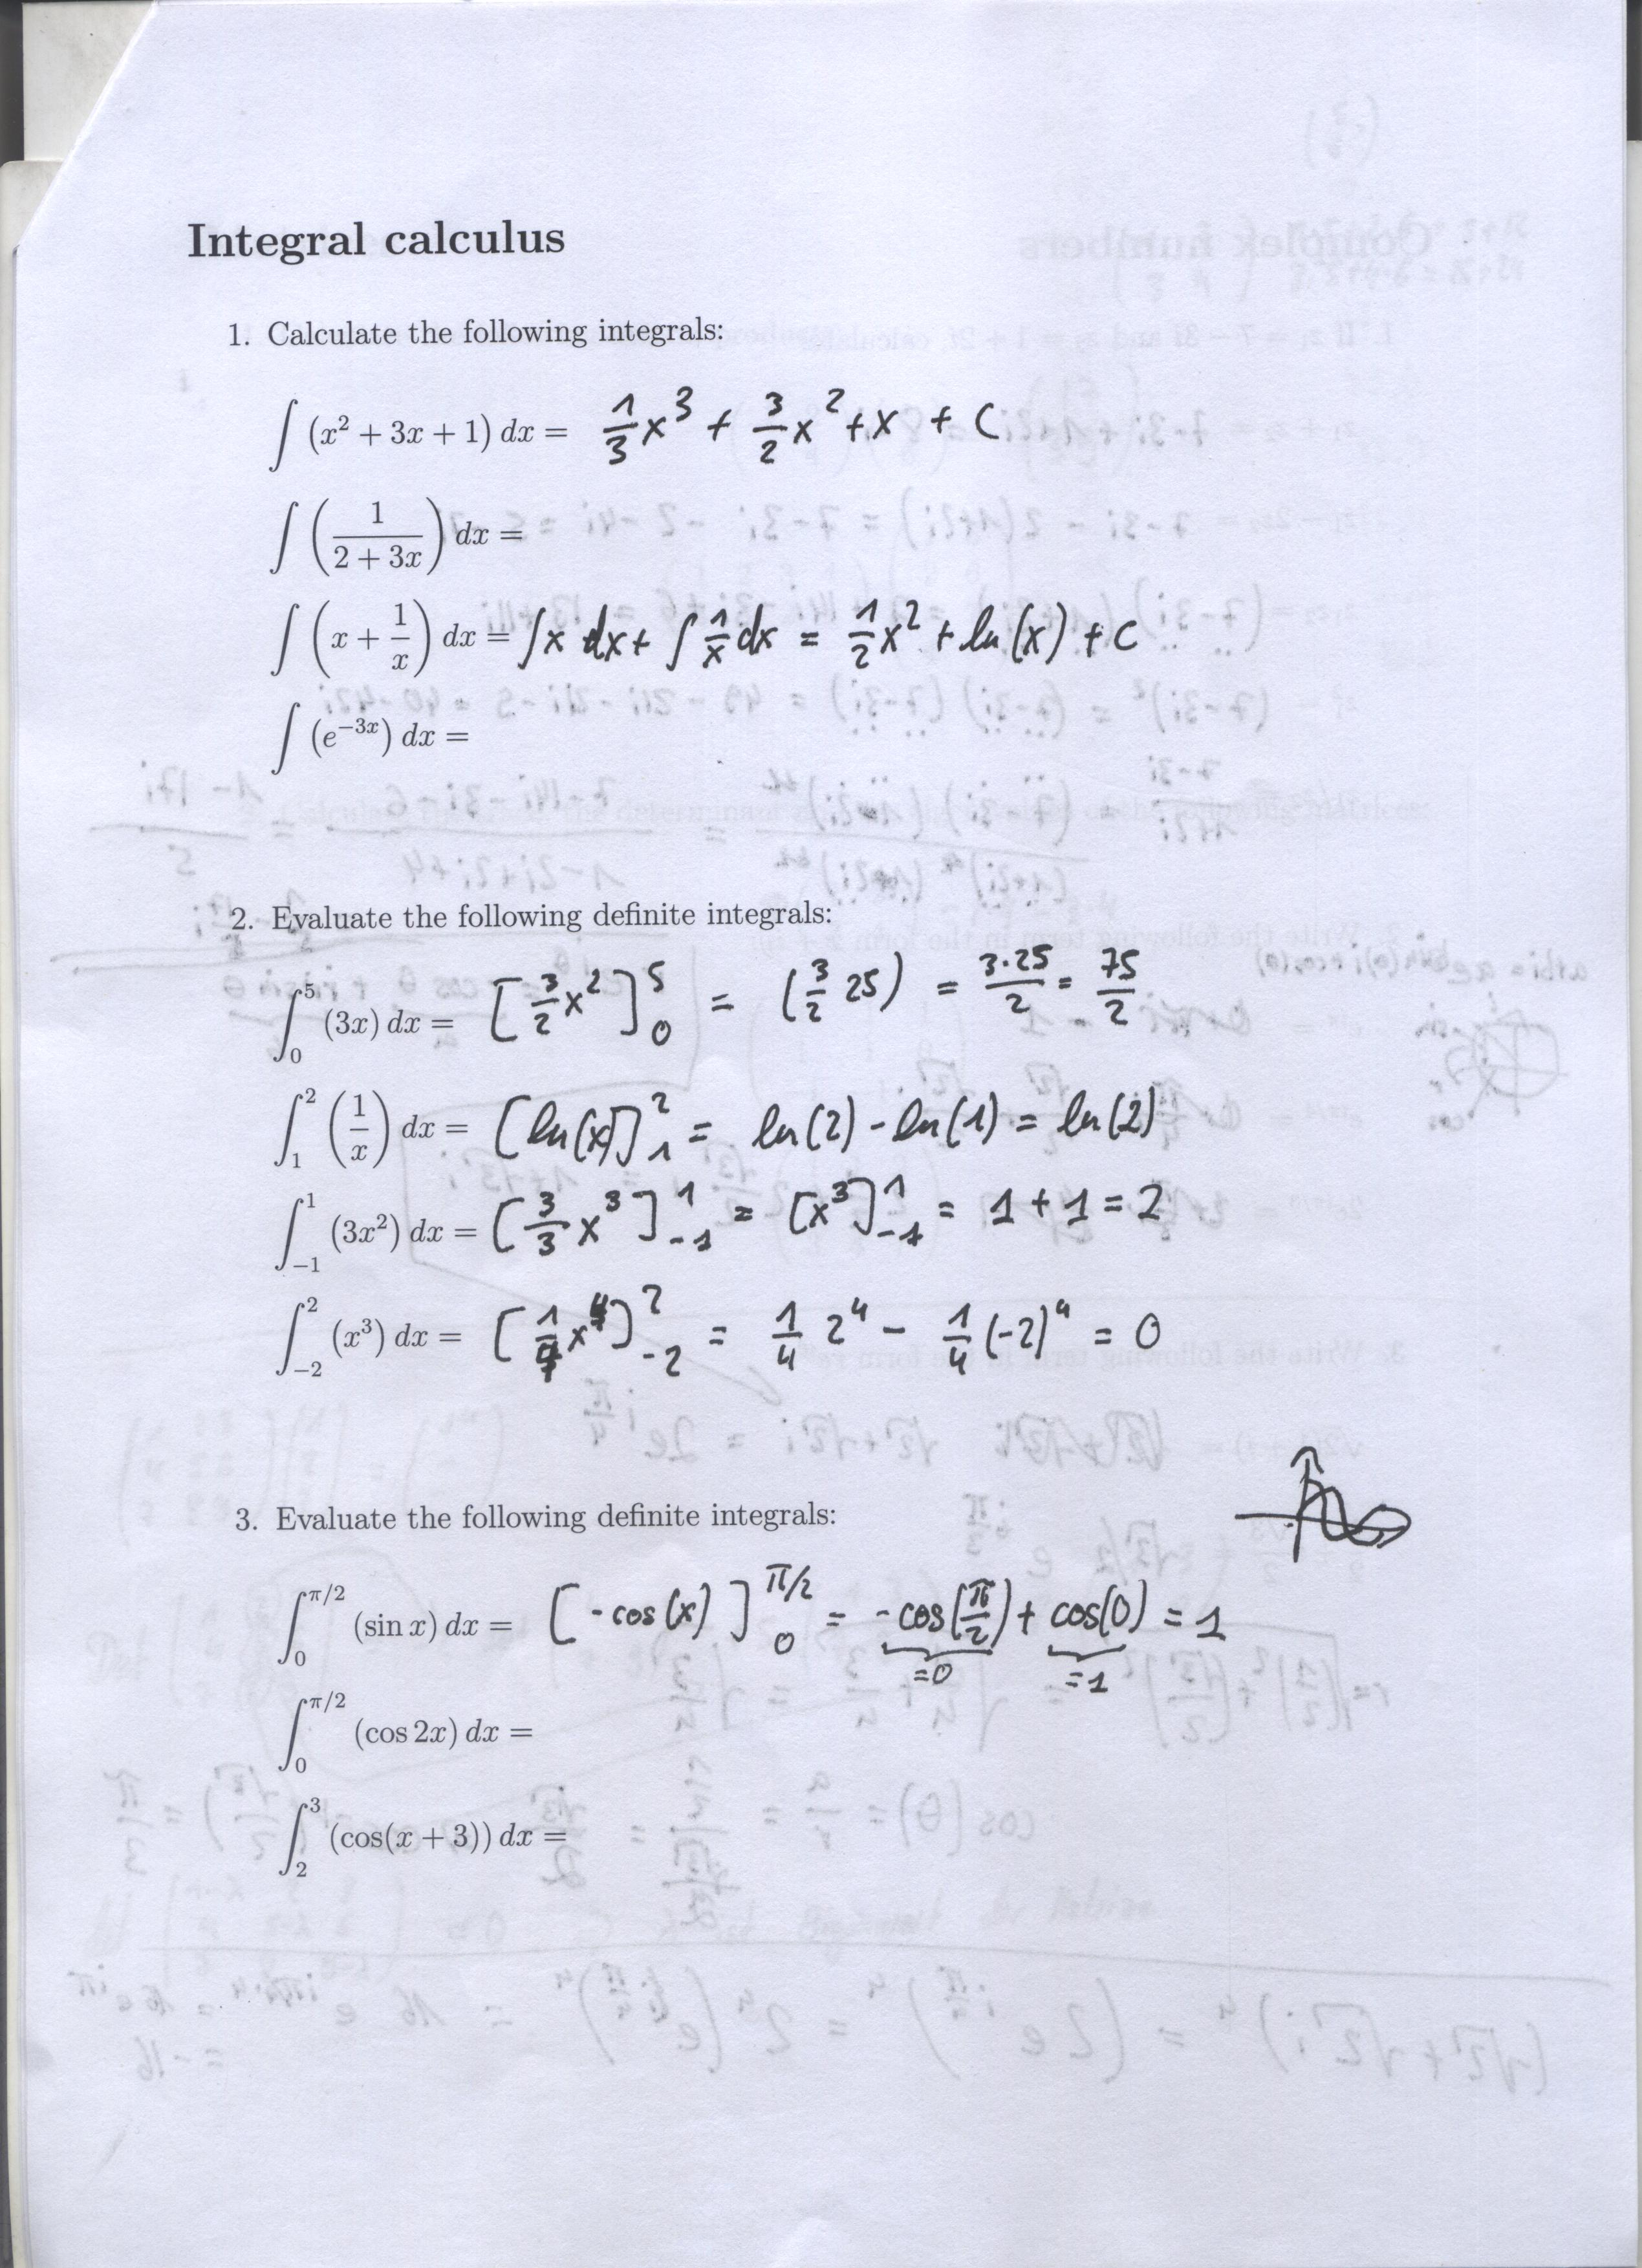 Integral calculus
1. Calculate the following integrals:
∫ (x² + 3x + 1) dx = 1/3 x³ + 3/2 x² + x + C
∫ (1/(2 + 3x)) dx =
∫ (x + 1/x) dx = ∫x dx + ∫ 1/x dx = 1/2 x² + ln(x) + C
∫ (e⁻³ˣ) dx =
2. Evaluate the following definite integrals:
∫₀⁵ (3x) dx = [3/2 x²]₀⁵ = (3/2 25) = 3·25/2 = 75/2
∫₁² (1/x) dx = [ln(x)]₁² = ln(2) - ln(1) = ln(2)
∫₋₁¹ (3x²) dx = [3/3 x³]₋₁¹ = [x³]₋₁¹ = 1 + 1 = 2
∫₋₂² (x³) dx = [1/4 x⁴]₋₂² = 1/4 2⁴ - 1/4 (-2)⁴ = 0
3. Evaluate the following definite integrals:
∫₀^(π/2) (sin x) dx = [-cos(x)]₀^(π/2) = -cos(π/2) + cos(0) = 1
=0 =1
∫₀^(π/2) (cos 2x) dx =
∫₂³ (cos(x + 3)) dx =